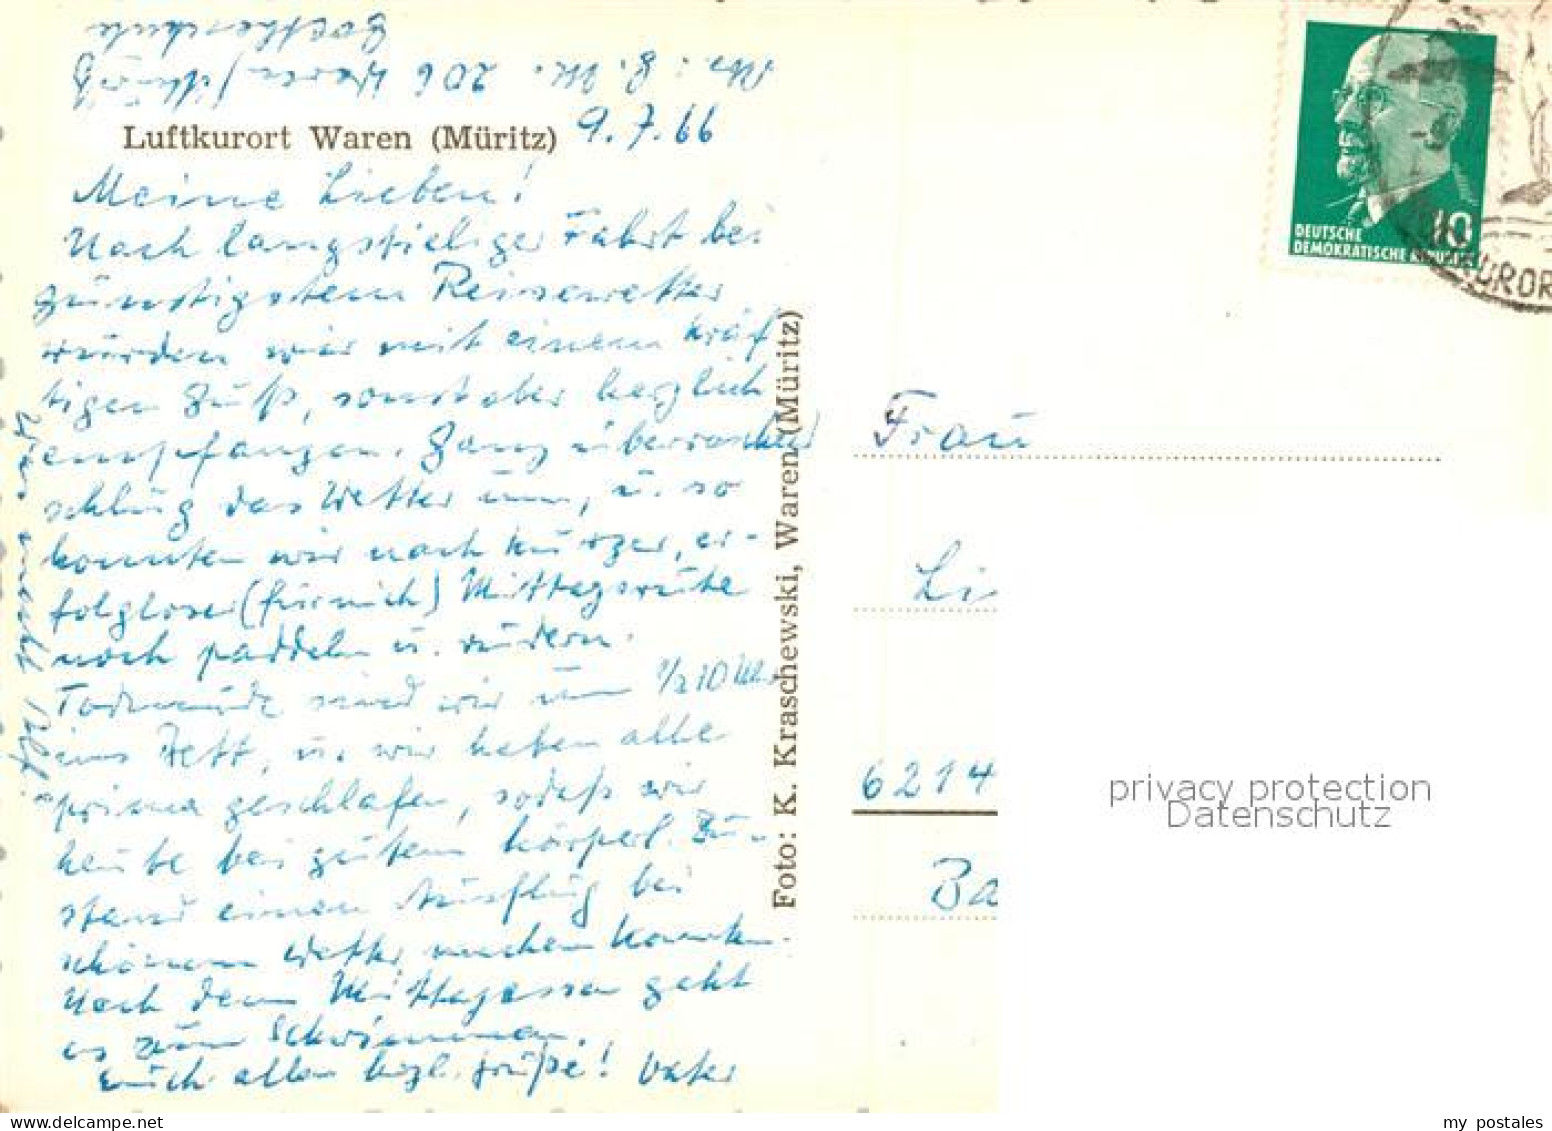 Goetheschule
Waren / Müritz
206
Luftkurort Waren (Müritz) 9.7.66
Meine Lieben!
Nach langstieliger Fahrt bei
günstigstem Reisewetter
wurden wir mit einem kräf
tigen Guß, sonst aber herzlich
empfangen. Ganz überraschend
schlug das Wetter um, u. so
konnten wir nach kurzer, er-
folgloser (für mich) Mittagsruhe
noch paddeln u. rudern.
Todmüde sind wir um 1/2 10 Uhr
ins Bett, u. wir haben alle
prima geschlafen, sodaß wir
heute bei gutem körperl. Zu-
stand einen Ausflug bei
schönem Wetter machen konnten.
Nach dem Mittagessen geht
es zum Schwimmen.
Euch allen herzl. Grüße! Vater
Foto: K. Kraschewski, Waren (Müritz)
DEUTSCHE
DEMOKRATISCHE REPUBLIK
10
KUROR
Frau
Li
6214
Ba
privacy protection
Datenschutz
my postales